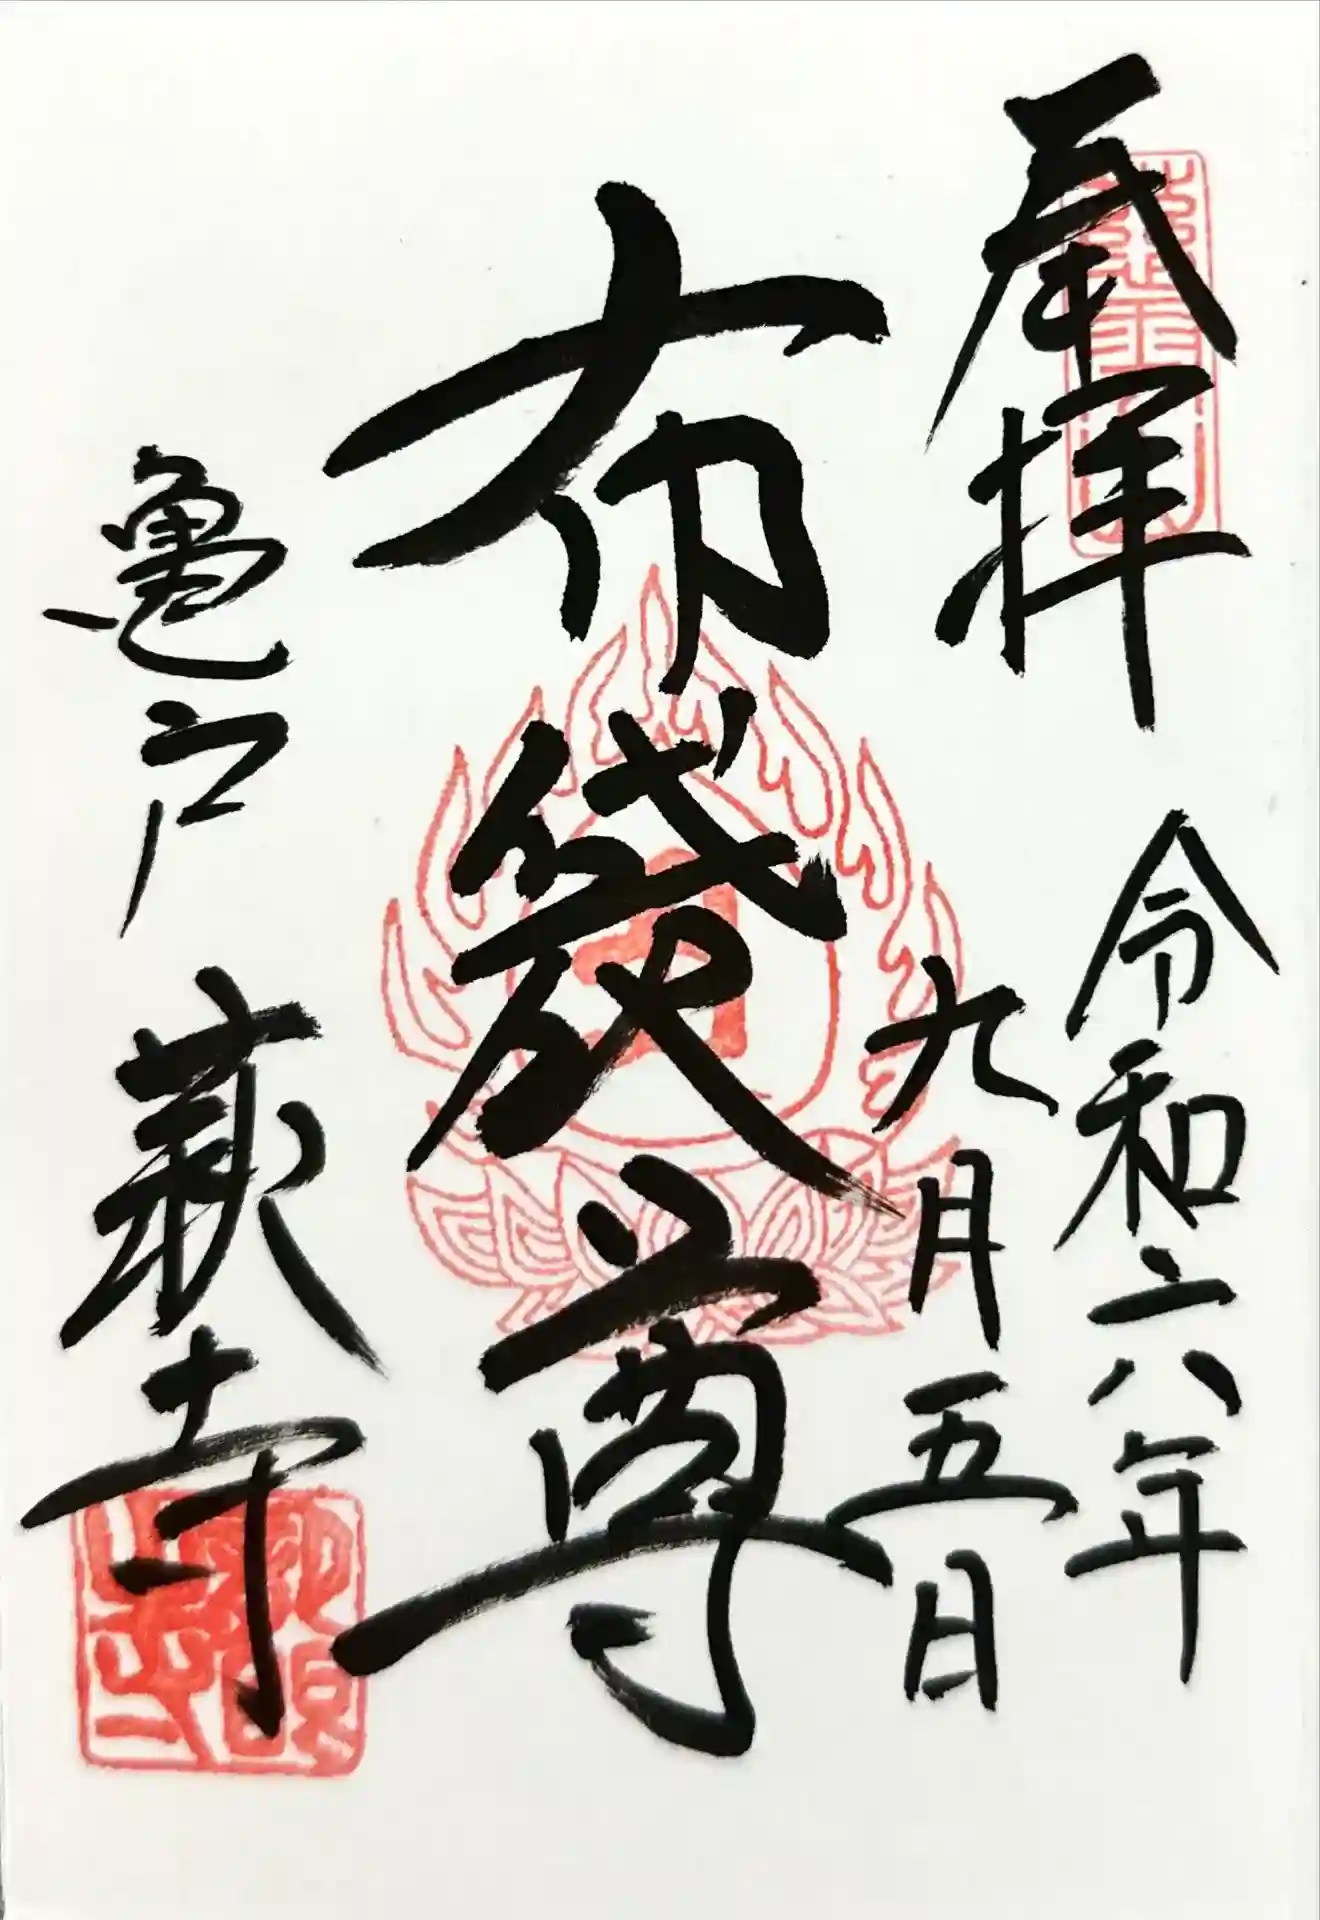 奉拝
令和六年
九月五日
布袋尊
亀戸 萩寺
慈雲山